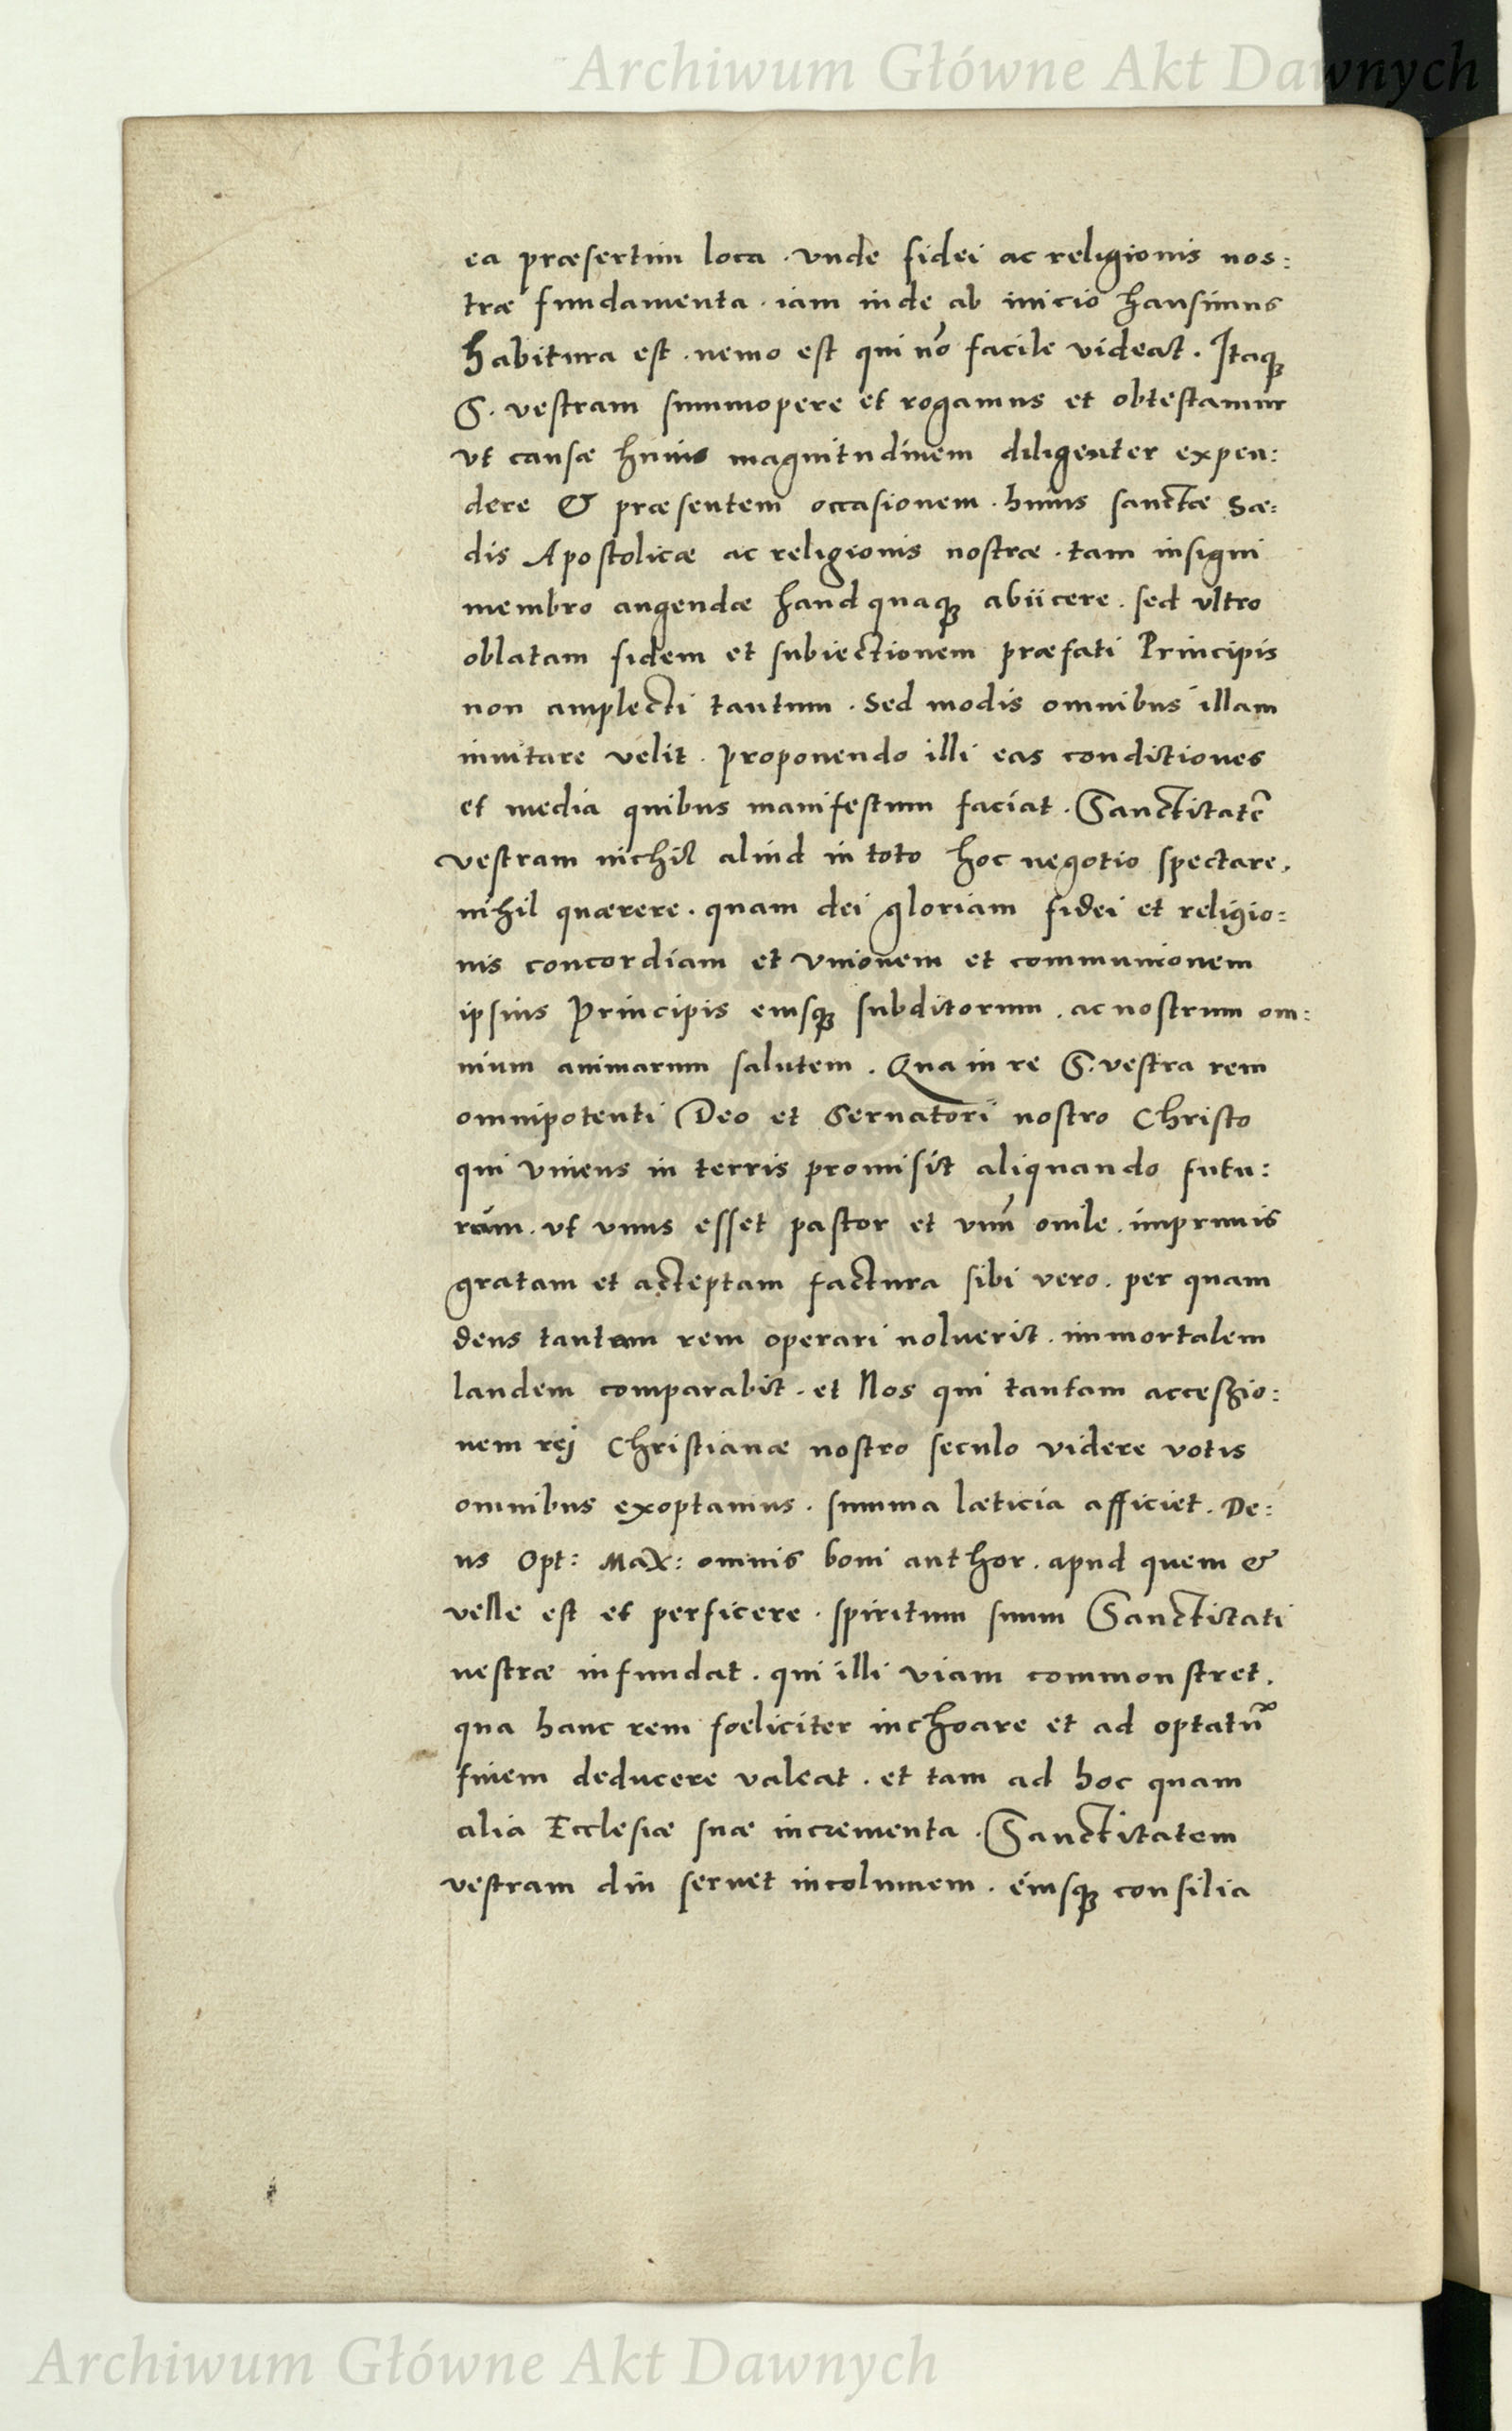 Archiwum Główne Akt Dawnych
ea præsertim loca . vnde fidei ac religionis nos:
træ fundamenta . iam inde ab inicio hausimus
habitura est . nemo est qui nõ facile videat . Itaqꝫ
S. vestram summopere et rogamus et obtestamur
vt causæ huius magnitudinem diligenter expen:
dere & præsentem occasionem . huius sanctæ Sæ:
dis Apostolicæ ac religionis nostræ . tam insigni
membro augendæ haud quaqꝫ abiicere . sed vltro
oblatam fidem et subiectionem præfati Principis
non amplecti tantum . Sed modis omnibus illam
inuitare velit . proponendo illi eas condictiones
et media quibus manifestum faciat . Sanctitatẽ
vestram nichil aliud in toto hoc negotio spectare .
nihil quærere . quam dei gloriam fidei et religio:
nis concordiam et vnionem et communionem
ipsius Principis eiusqꝫ subditorum . ac nostrum om:
nium animarum salutem . Qua in re S. vestra rem
omnipotenti Deo et Seruatori nostro Christo
qui viuens in terris promisit aliquando futu:
rum . vt vnus esset pastor et vnũ ouile . imprimis
gratam et acceptam factura sibi vero . per quam
deus tantam rem operari uoluerit . immortalem
laudem comparabit . et Nos qui tantam accessio:
nem rej Christianæ nostro seculo videre votis
omnibus exoptamus . summa læticia afficiet . De:
us Opt: Max: omnis boni author . apud quem &
velle est et perficere . spiritum suum Sanctitati
uestræ infundat . qui illi viam commonstret .
qua hanc rem fœliciter inchoare et ad optatũ
finem deducere valeat . et tam ad hoc quam
alia Ecclesiæ suæ incrementa . Sanctitatem
vestram diu seruet incolumem . eiusqꝫ consilia
Archiwum Główne Akt Dawnych